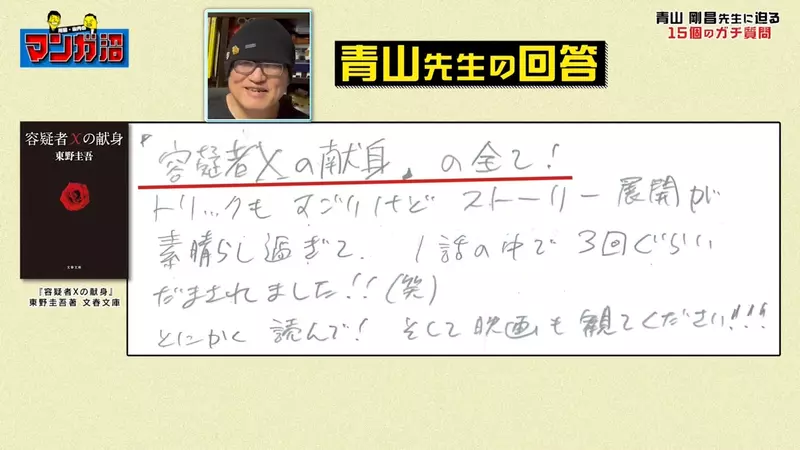 マンガ沼
青山 剛昌先生に迫る
15個のガチ質問
青山先生の回答
容疑者Xの献身
東野圭吾
文春文庫
『容疑者Xの献身』
東野圭吾著 文春文庫
『容疑者Xの献身』の全て!
トリックもすごいけどストーリー展開が
素晴らし過ぎて、1話の中で3回ぐらい
だまされました!!(笑)
とにかく 読んで! そして映画も観てください!!!